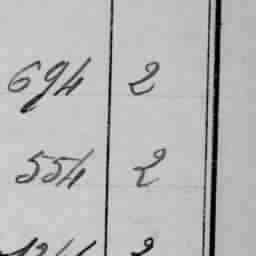 694 2
554 2